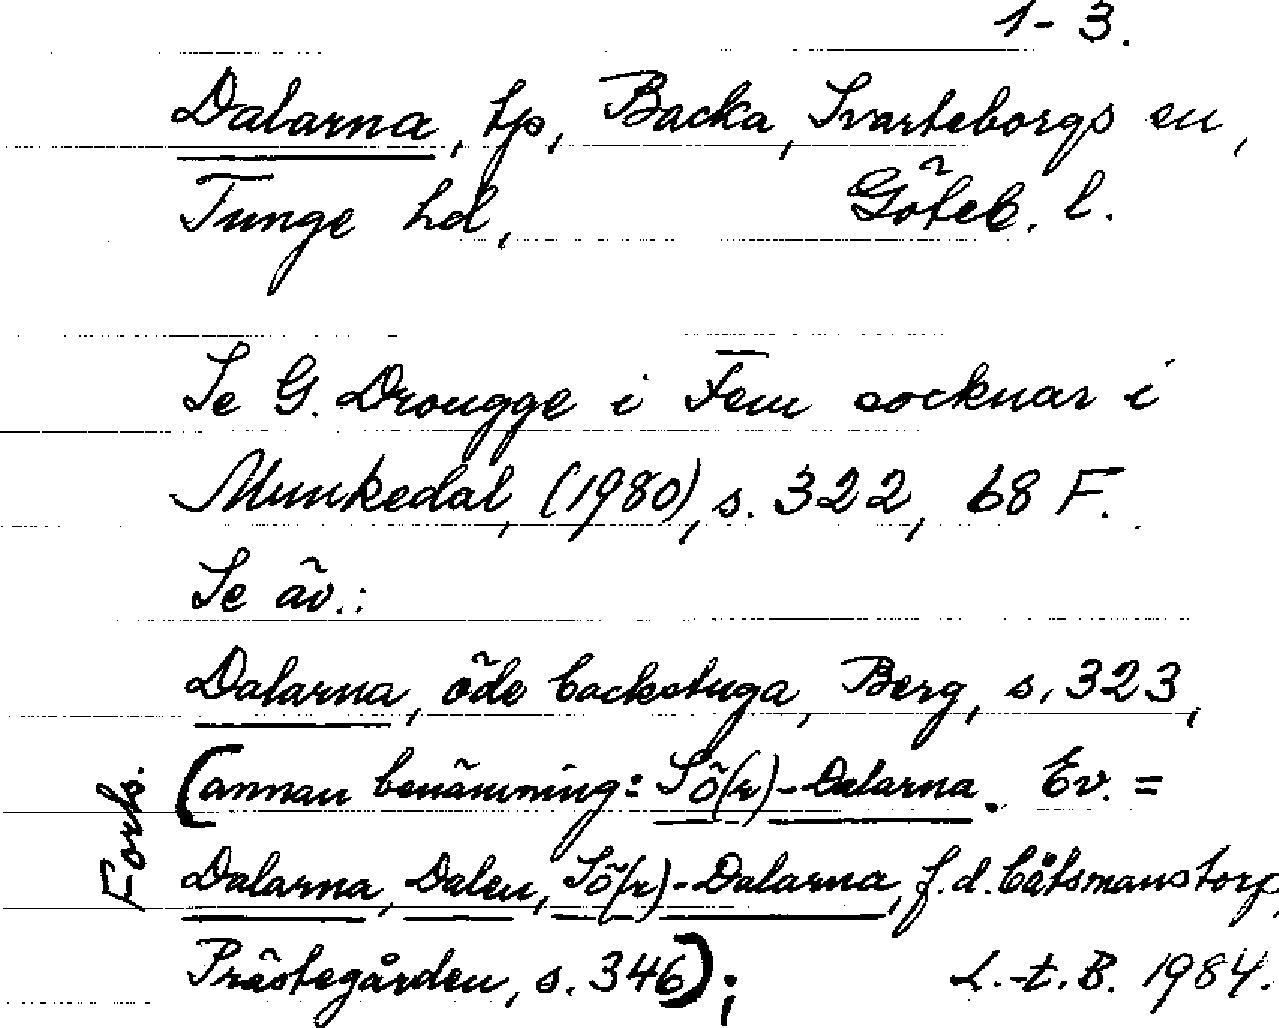 1-3.
Dalarna, tp, Backa, Svarteborgs sn,
Tunge hd, Göteb. l.
Se G. Drougge i Fem socknar i
Munkedal, (1980), s. 322, 68 F.
Se äv.:
Dalarna, öde backstuga, Berg, s. 323,
(annan benämning: Sö(r)-Dalarna. Ev. =
Dalarna, Dalen, Sö(r)-Dalarna, f.d. båtsmanstorp,
Prästegården, s. 346);
L.-t. B. 1984.
Forts.